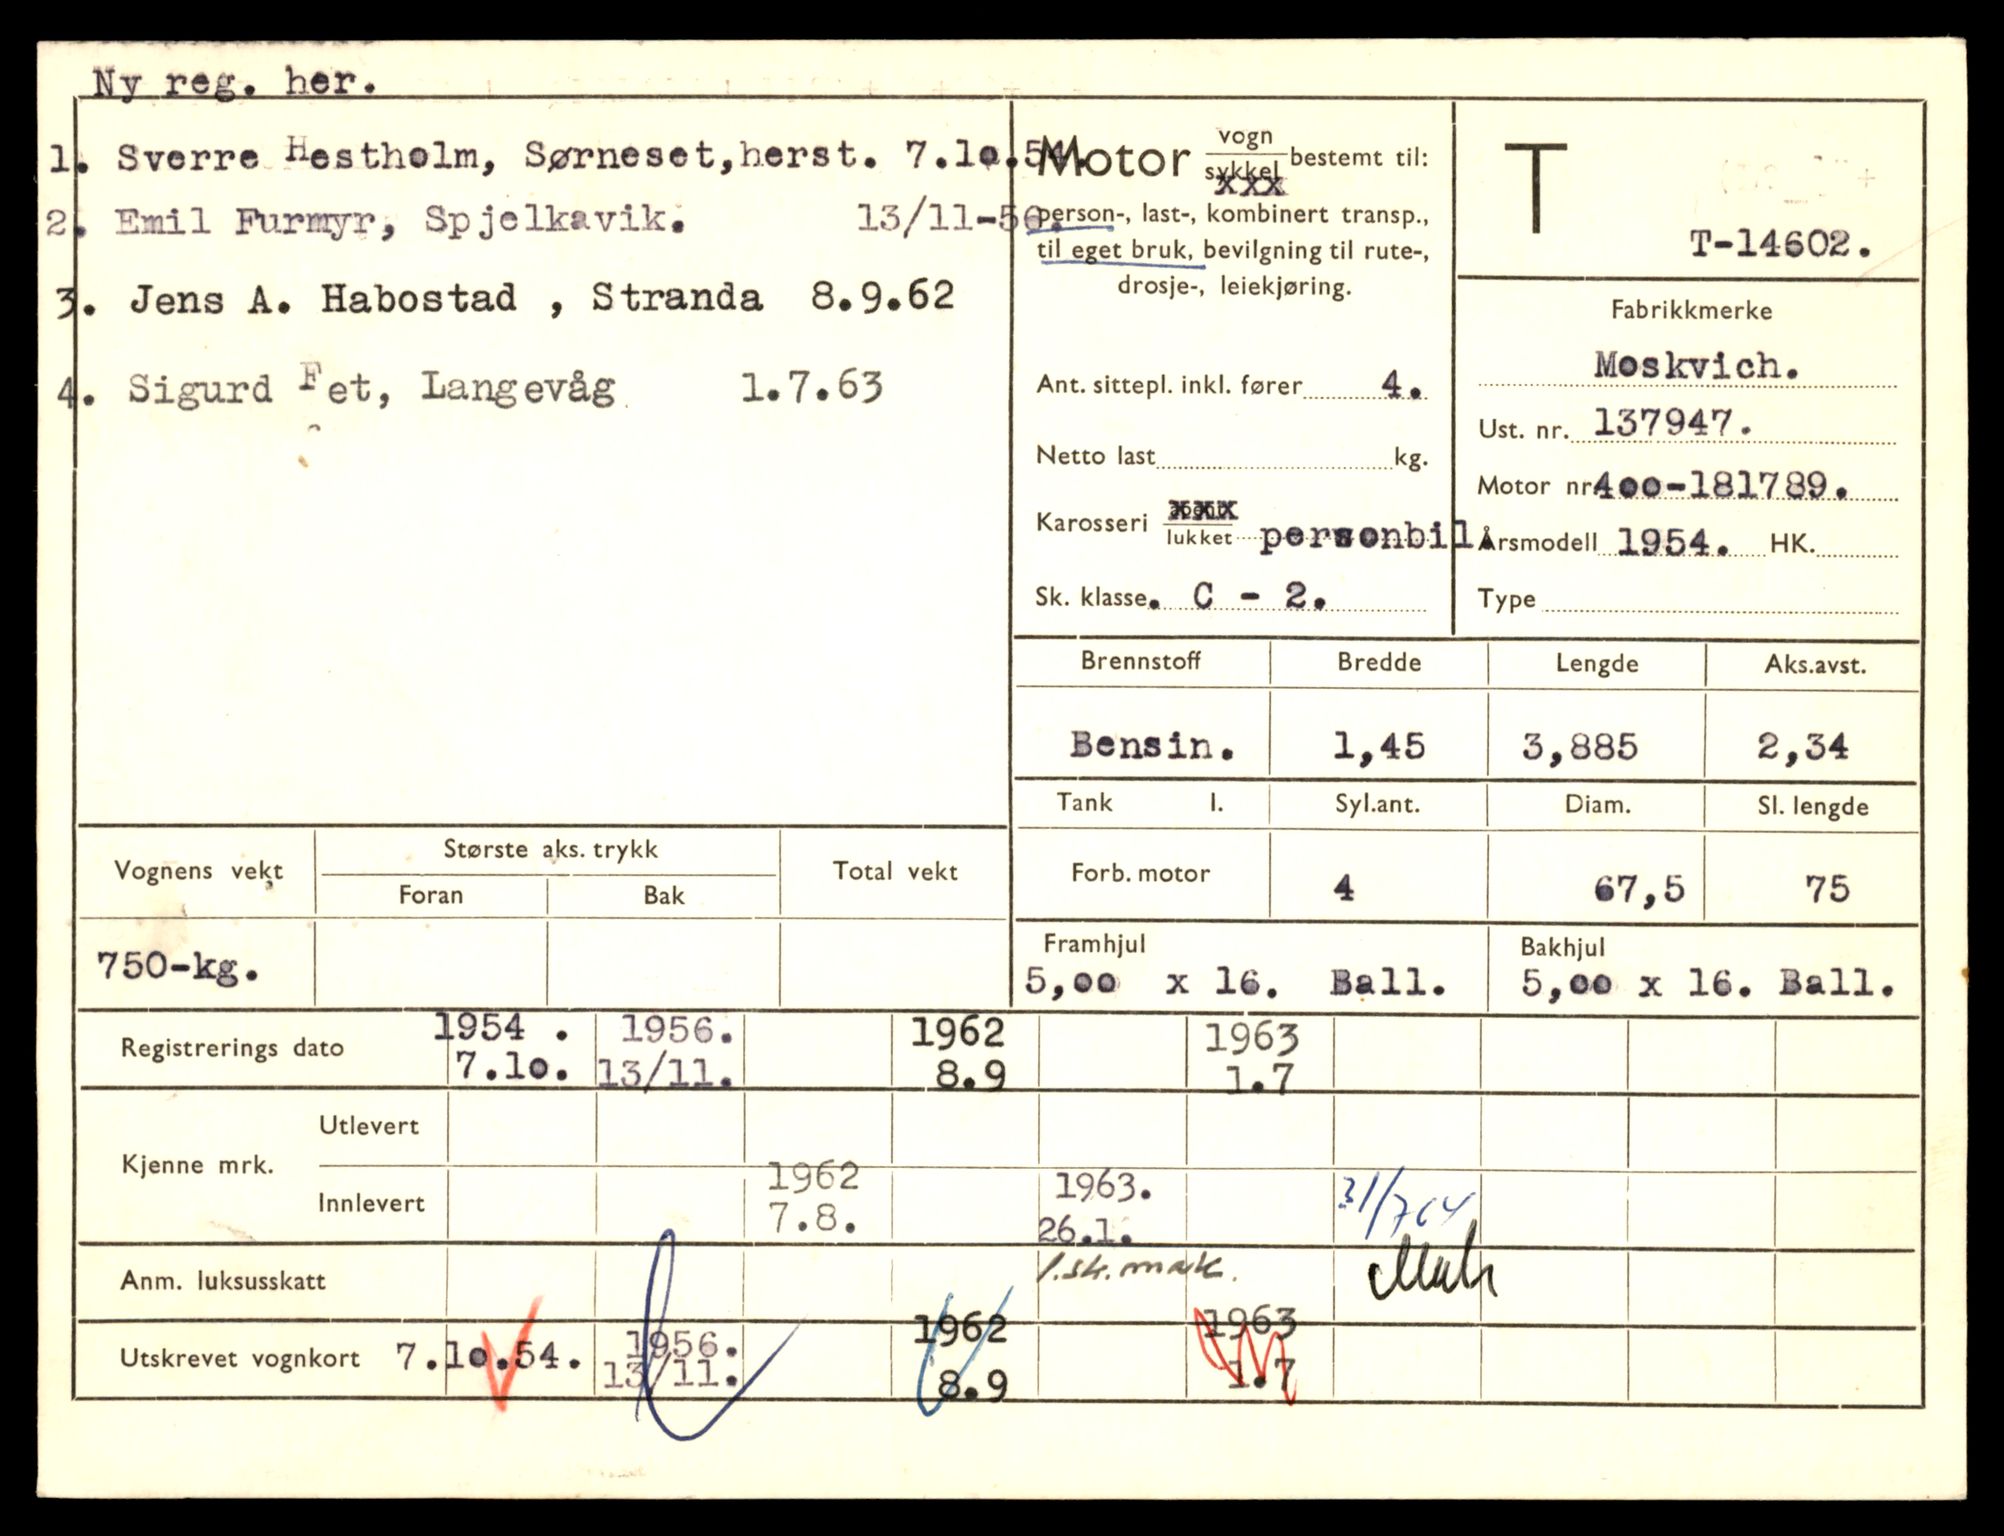 Ny reg. her.
1. Sverre Hestholm, Sørneset,herst. 7.1o.54.
2. Emil Furmyr, Spjelkavik. 13/11-56.
3. Jens A. Habostad , Stranda 8.9.62
4. Sigurd Fet, Langevåg 1.7.63
Motor vogn sykkel xxx bestemt til:
person-, last-, kombinert transp.,
til eget bruk, bevilgning til rute-,
drosje-, leiekjøring.
Ant. sittepl. inkl. fører 4.
Netto last kg.
Karosseri xxx lukket personbil
Sk. klasse. C - 2.
T
T-14602.
Fabrikkmerke
Moskvich.
Ust. nr. 137947.
Motor nr 4oo-181789.
Årsmodell 1954. HK.
Type
Brennstoff Bredde Lengde Aks.avst.
Bensin. 1,45 3,885 2,34
Tank l. Syl.ant. Diam. Sl. lengde
Forb. motor 4 67,5 75
Framhjul Bakhjul
5,oo x 16. Ball. 5,oo x 16. Ball.
Vognens vekt Største aks. trykk Total vekt
Foran Bak
750-kg.
Registrerings dato 1954 . 1956. 1962 1963
7.1o. 13/11. 8.9 1.7
Kjenne mrk. Utlevert
Innlevert 1962 1963. 31/7 64
7.8. 26.1.
Anm. luksusskatt 1.sk. mrk.
Utskrevet vognkort 7.1o.54. 1956. 1962 1963
13/11. 8.9 1.7